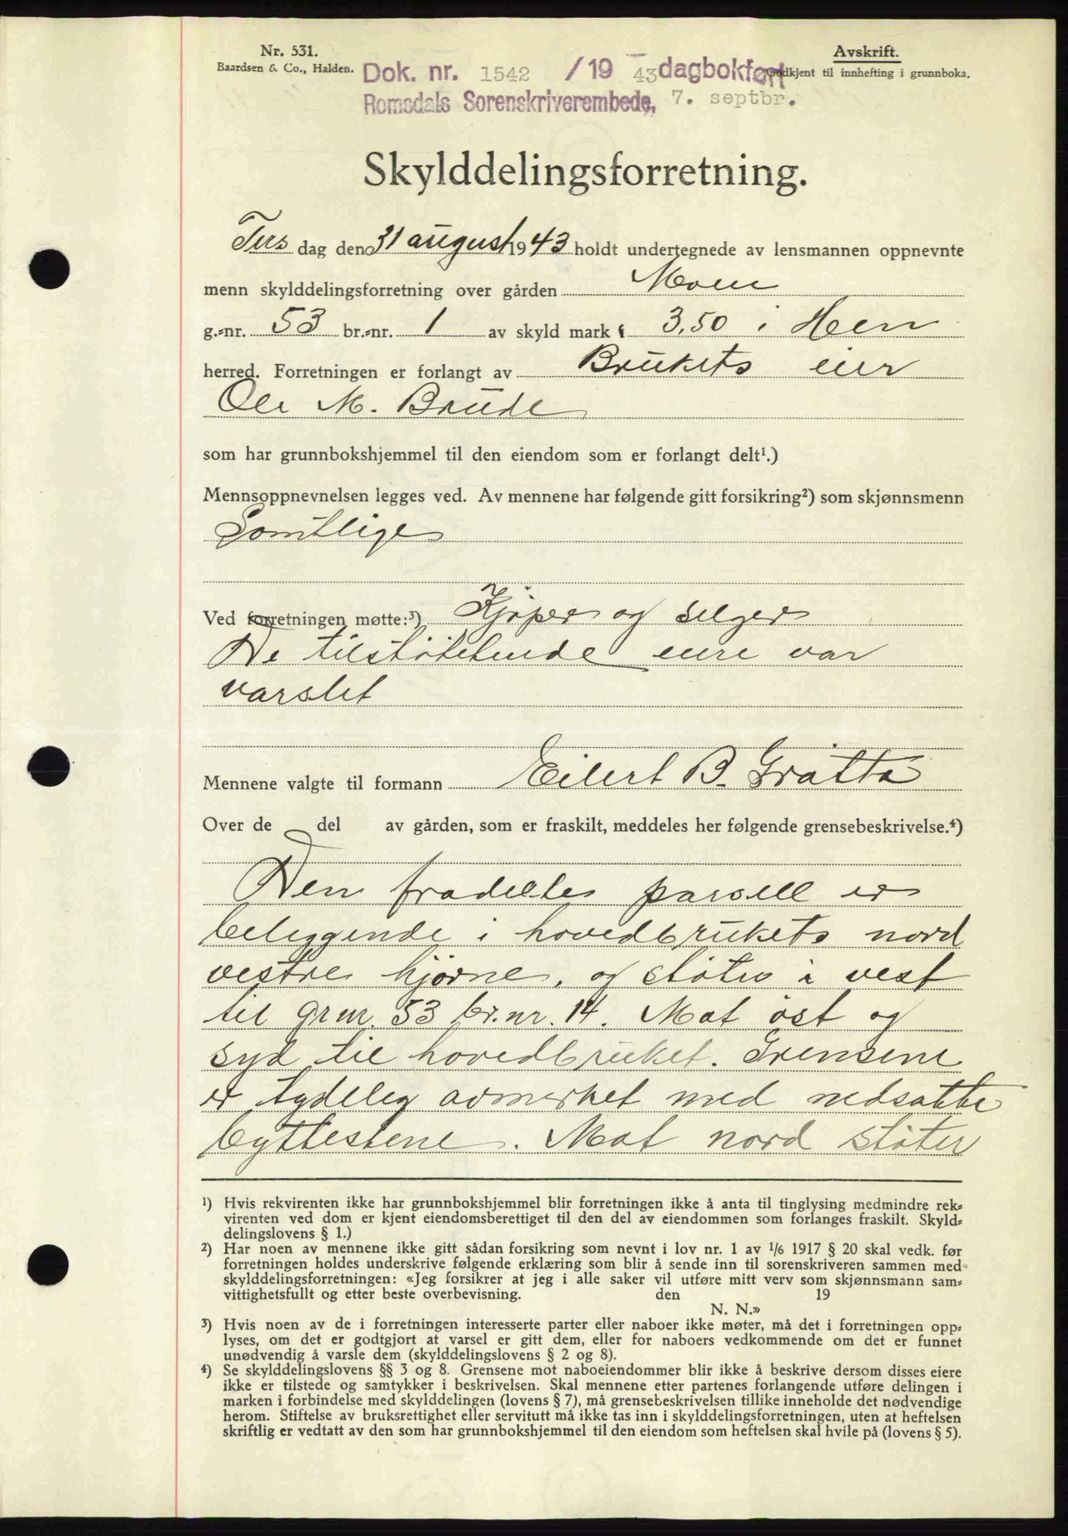 Nr. 531.
Baardsen & Co., Halden.
Avskrift.
Godkjent til innhefting i grunnboka.
Dok. nr. 1542 /19 43 dagbokført
Romsdals Sorenskriverembede, 7. septbr.
Skylddelingsforretning.
Tirs dag den 31 august 1943 holdt undertegnede av lensmannen oppnevnte
menn skylddelingsforretning over gården Moen
g.-nr. 53 br.-nr. 1 av skyld mark 3,50 i Hen
herred. Forretningen er forlangt av Brukets eier
Ole M. Brude
som har grunnbokshjemmel til den eiendom som er forlangt delt¹.)
Mennsoppnevnelsen legges ved. Av mennene har følgende gitt forsikring²) som skjønnsmenn
Samtlige
Ved forretningen møtte:³) Kjøper og selger
De tilstøtende eiere var
varslet
Mennene valgte til formann Eilert B. Grøtta
Over de del av gården, som er fraskilt, meddeles her følgende grensebeskrivelse.⁴)
Den fradelte parsell er
beliggende i hovedbrukets nord
vestre hjørne, og støter i vest
til grnr. 53 br. nr. 14. Mot øst og
syd til hovedbruket. Grensene
er tydeleg avmerket med nedsatte
byttestene. Mot nord støter
¹) Hvis rekvirenten ikke har grunnbokshjemmel blir forretningen ikke å anta til tinglysing medmindre rek-
virenten ved dom er kjent eiendomsberettiget til den del av eiendommen som forlanges fraskilt. Skyld-
delingslovens § 1.)
²) Har noen av mennene ikke gitt sådan forsikring som nevnt i lov nr. 1 av ¹/₆ 1917 § 20 skal vedk. før
forretningen holdes underskrive følgende erklæring som blir å sende inn til sorenskriveren sammen med
skylddelingsforretningen: «Jeg forsikrer at jeg i alle saker vil utføre mitt verv som skjønnsmann sam-
vittighetsfullt og etter beste overbevisning. den 19
N. N.»
³) Hvis noen av de i forretningen interesserte parter eller naboer ikke møter, må det i forretningen opp-
lyses, om det er godtgjort at varsel er gitt dem, eller for naboers vedkommende om det er funnet
unødvendig å varsle dem (skylddelingslovens § 2 og 8).
⁴) Se skylddelingslovens §§ 3 og 8. Grensene mot naboeiendommer blir ikke å beskrive dersom disses eiere
ikke er tilstede og samtykker i beskrivelsen. Skal mennene etter partenes forlangende utføre delingen i
marken i forbindelse med skylddelingen (lovens § 7), må grensebeskrivelsen tillike inneholde det nødvendige
herom. Stiftelse av bruksrettighet eller servitutt må ikke tas inn i skylddelingsforretningen, uten at heftelsen
skriftlig er vedtatt av den som har grunnbokshjemmel til den eiendom som heftelsen skal hvile på (lovens § 5).